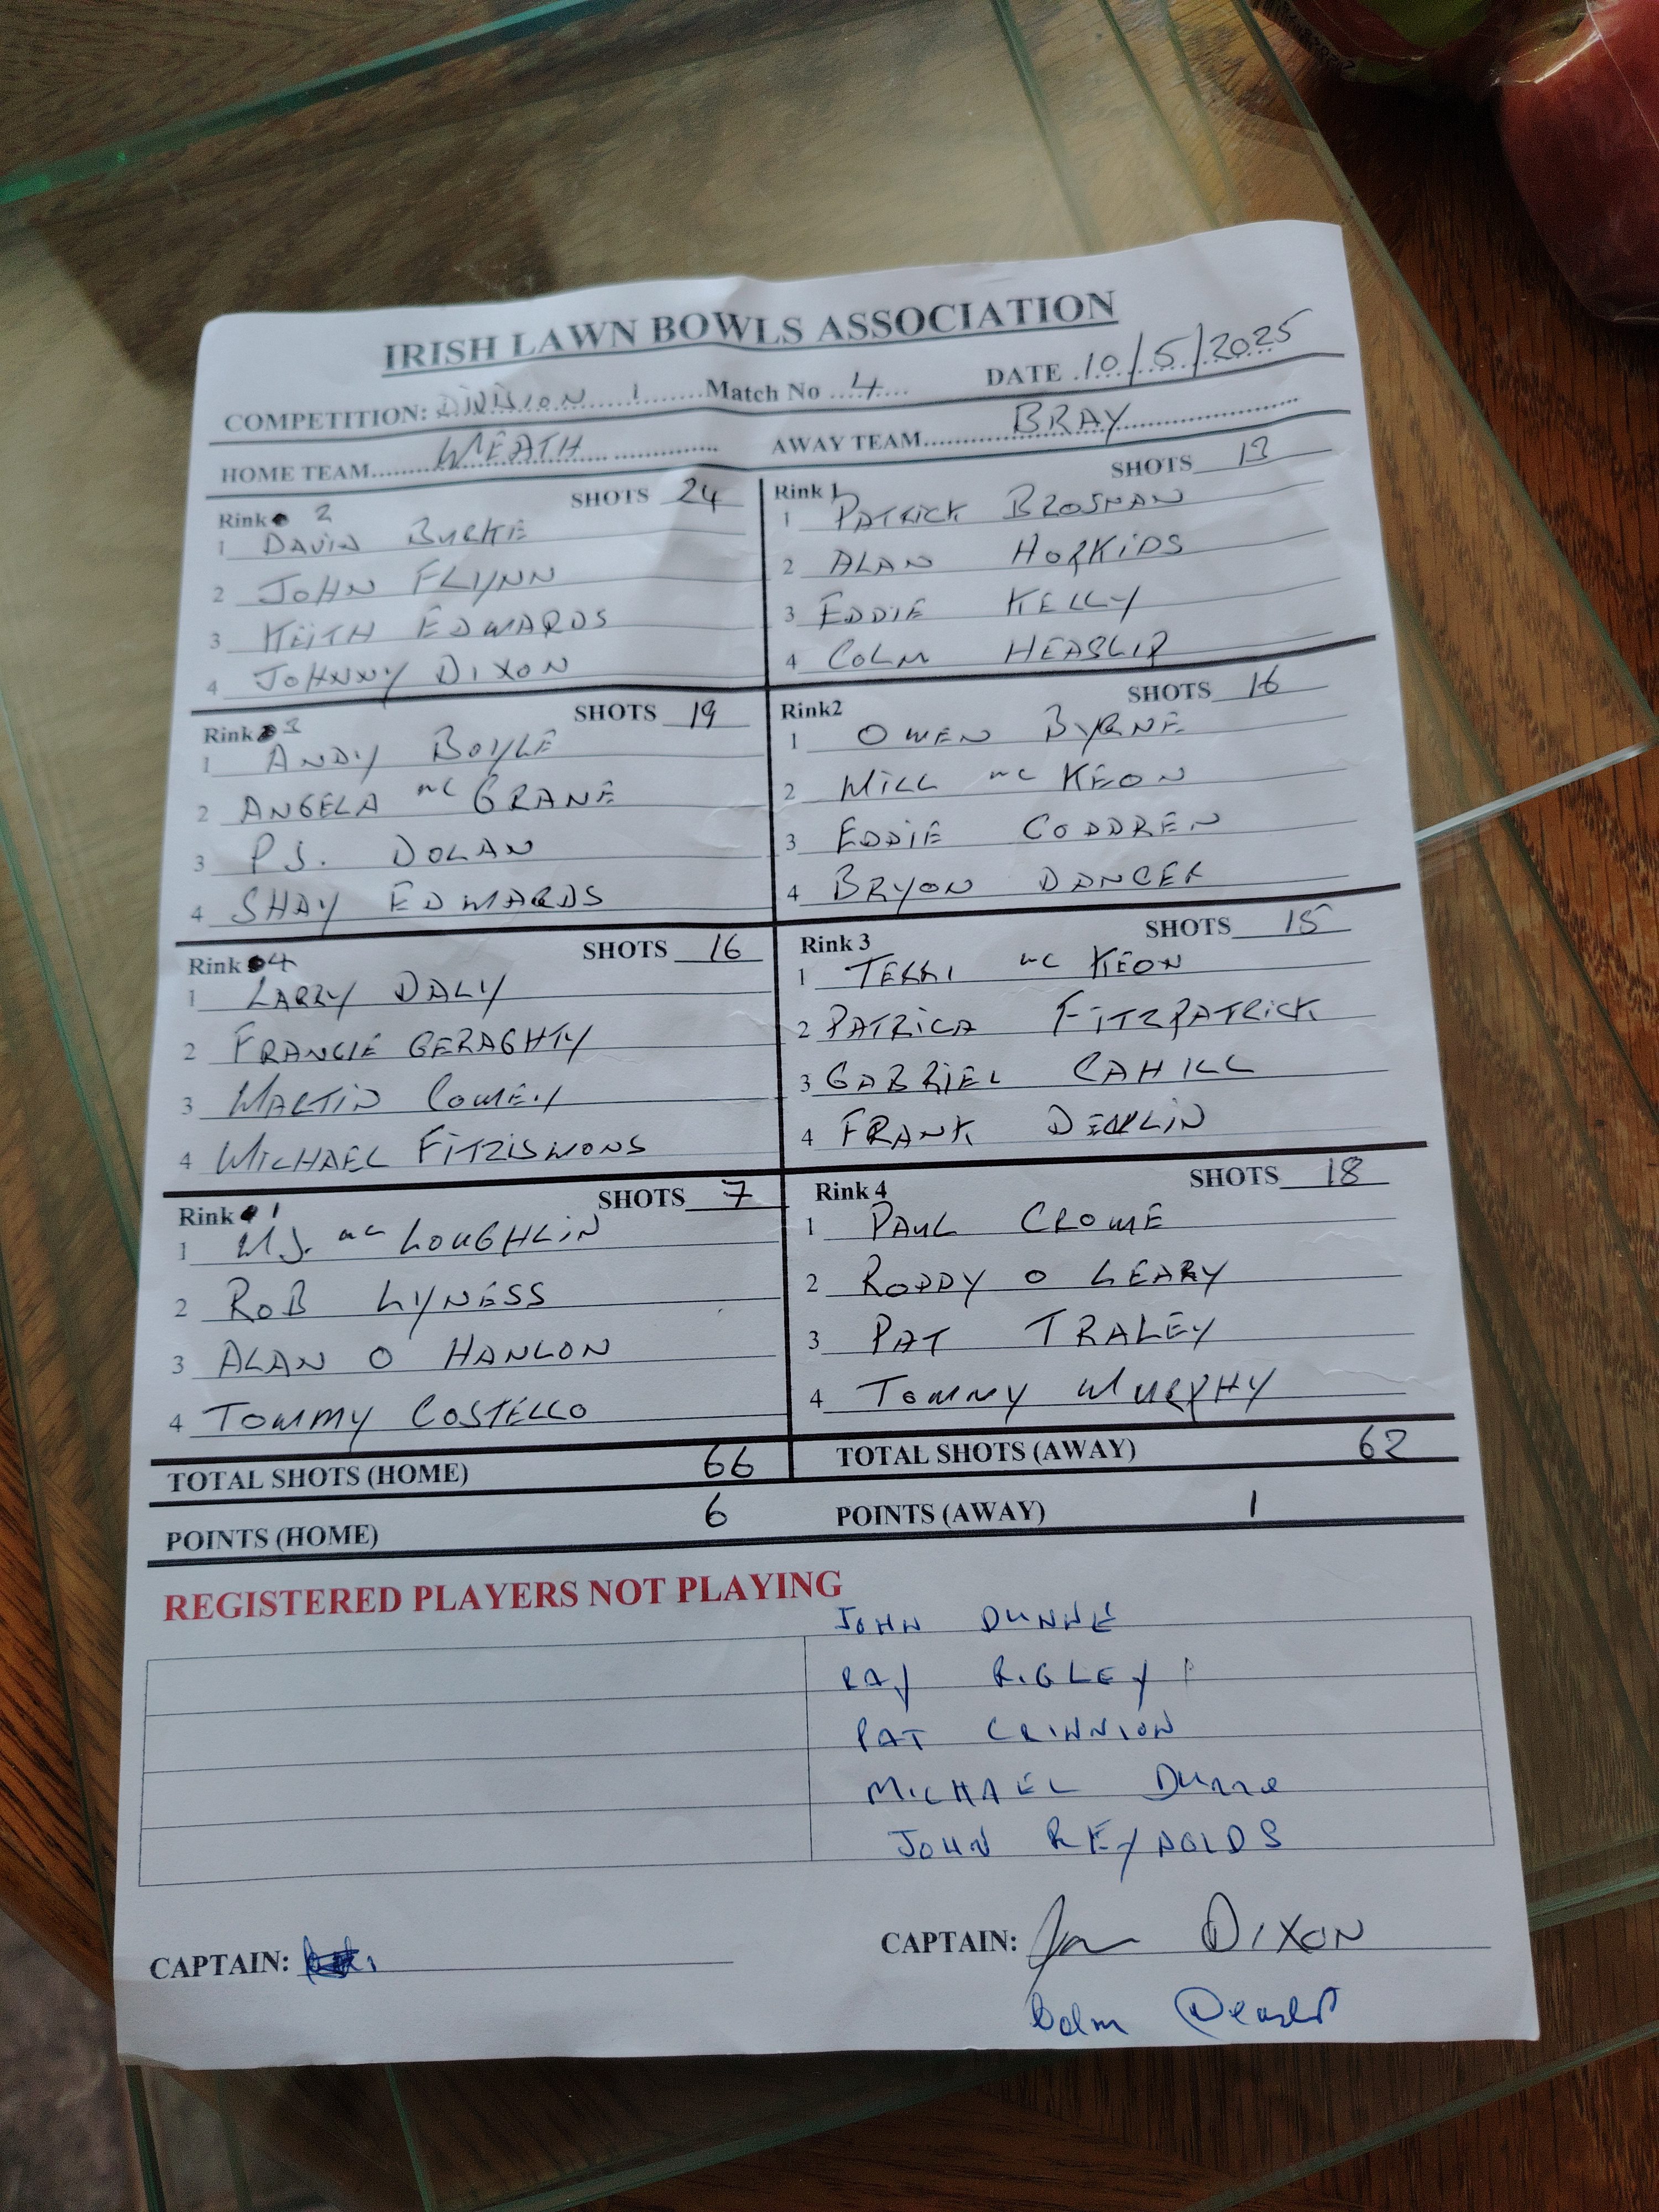 IRISH LAWN BOWLS ASSOCIATION
COMPETITION: DIVISION 1 Match No 4 DATE 10/5/2025
HOME TEAM MEATH AWAY TEAM BRAY
Rink 2 SHOTS 24
1 DAVID BURKE
2 JOHN FLYNN
3 KEITH EDWARDS
4 JOHNNY DIXON
Rink 1 SHOTS 13
1 PATRICK BROSNAN
2 ALAN HOPKINS
3 EDDIE KELLY
4 COLM HEASLIP
Rink 3 SHOTS 19
1 ANDY BOYLE
2 ANGELA Mc GRANE
3 P.J. DOLAN
4 SHAY EDWARDS
Rink2 SHOTS 16
1 OWEN BYRNE
2 WILL Mc KEON
3 EDDIE CODDREN
4 BRYON DANCER
Rink 4 SHOTS 16
1 LARRY DALY
2 FRANCIE GERAGHTY
3 MARTIN COMEY
4 MICHAEL FITZISMONS
Rink 3 SHOTS 15
1 TERRI Mc KEON
2 PATRICA FITZPATRICK
3 GABRIEL CAHILL
4 FRANK DEVLIN
Rink 1 SHOTS 7
1 M.J. Mc LOUGHLIN
2 ROB LYNESS
3 ALAN O HANLON
4 TOMMY COSTELLO
Rink 4 SHOTS 18
1 PAUL CROWE
2 RODDY O LEARY
3 PAT TRALEY
4 TOMMY MURPHY
TOTAL SHOTS (HOME) 66 TOTAL SHOTS (AWAY) 62
POINTS (HOME) 6 POINTS (AWAY) 1
REGISTERED PLAYERS NOT PLAYING
JOHN DUNNE
RAY RIGLEY
PAT CRINNION
MICHAEL Dunne
JOHN REYNOLDS
CAPTAIN: CAPTAIN: DIXON
Colm